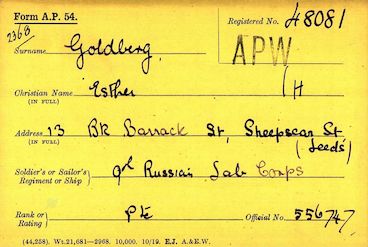 Form A.P. 54.
Registered No. 48081
2368
Surname Goldberg
APW
Christian Name Esther (H
(IN FULL)
Address 13 Bk Barrack St, Sheepscar St
(IN FULL) (Leeds)
Soldier's or Sailor's Regiment or Ship 9th Russian Lab Corps
Rank or Rating Pte Official No. 556747
(44,258). Wt.21,681—2968. 10,000. 10/19. E.J. A.&E.W.